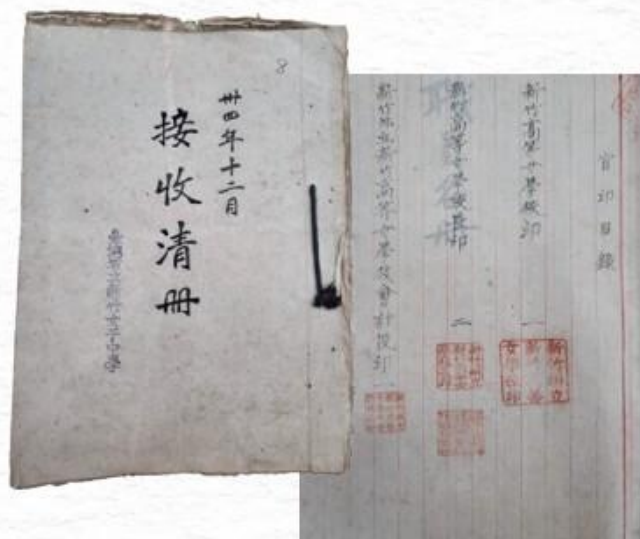 8
卅四年十二月
接收清冊
臺灣省立新竹女子中學
官印目錄
新竹高等女學校印 一
新竹高等女學校長印 二
新竹州立新竹高等女學校會計役印 一